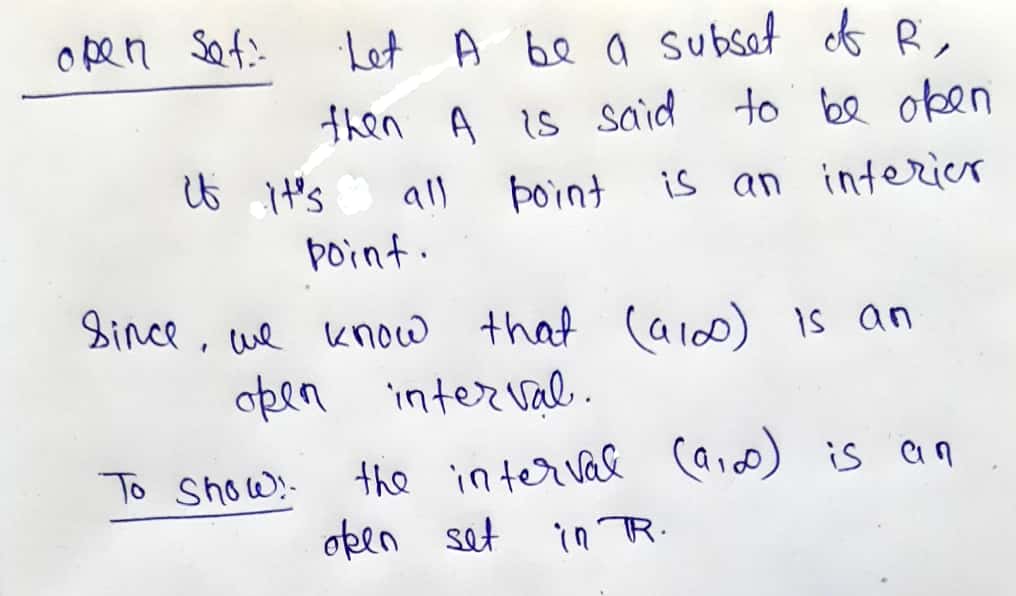 open Set:- Let A be a subset of R,
then A is said to be open
if it's all point is an interior
point.
Since, we know that (a,∞) is an
open interval.
To show:- the interval (a,∞) is an
open set in ℝ.